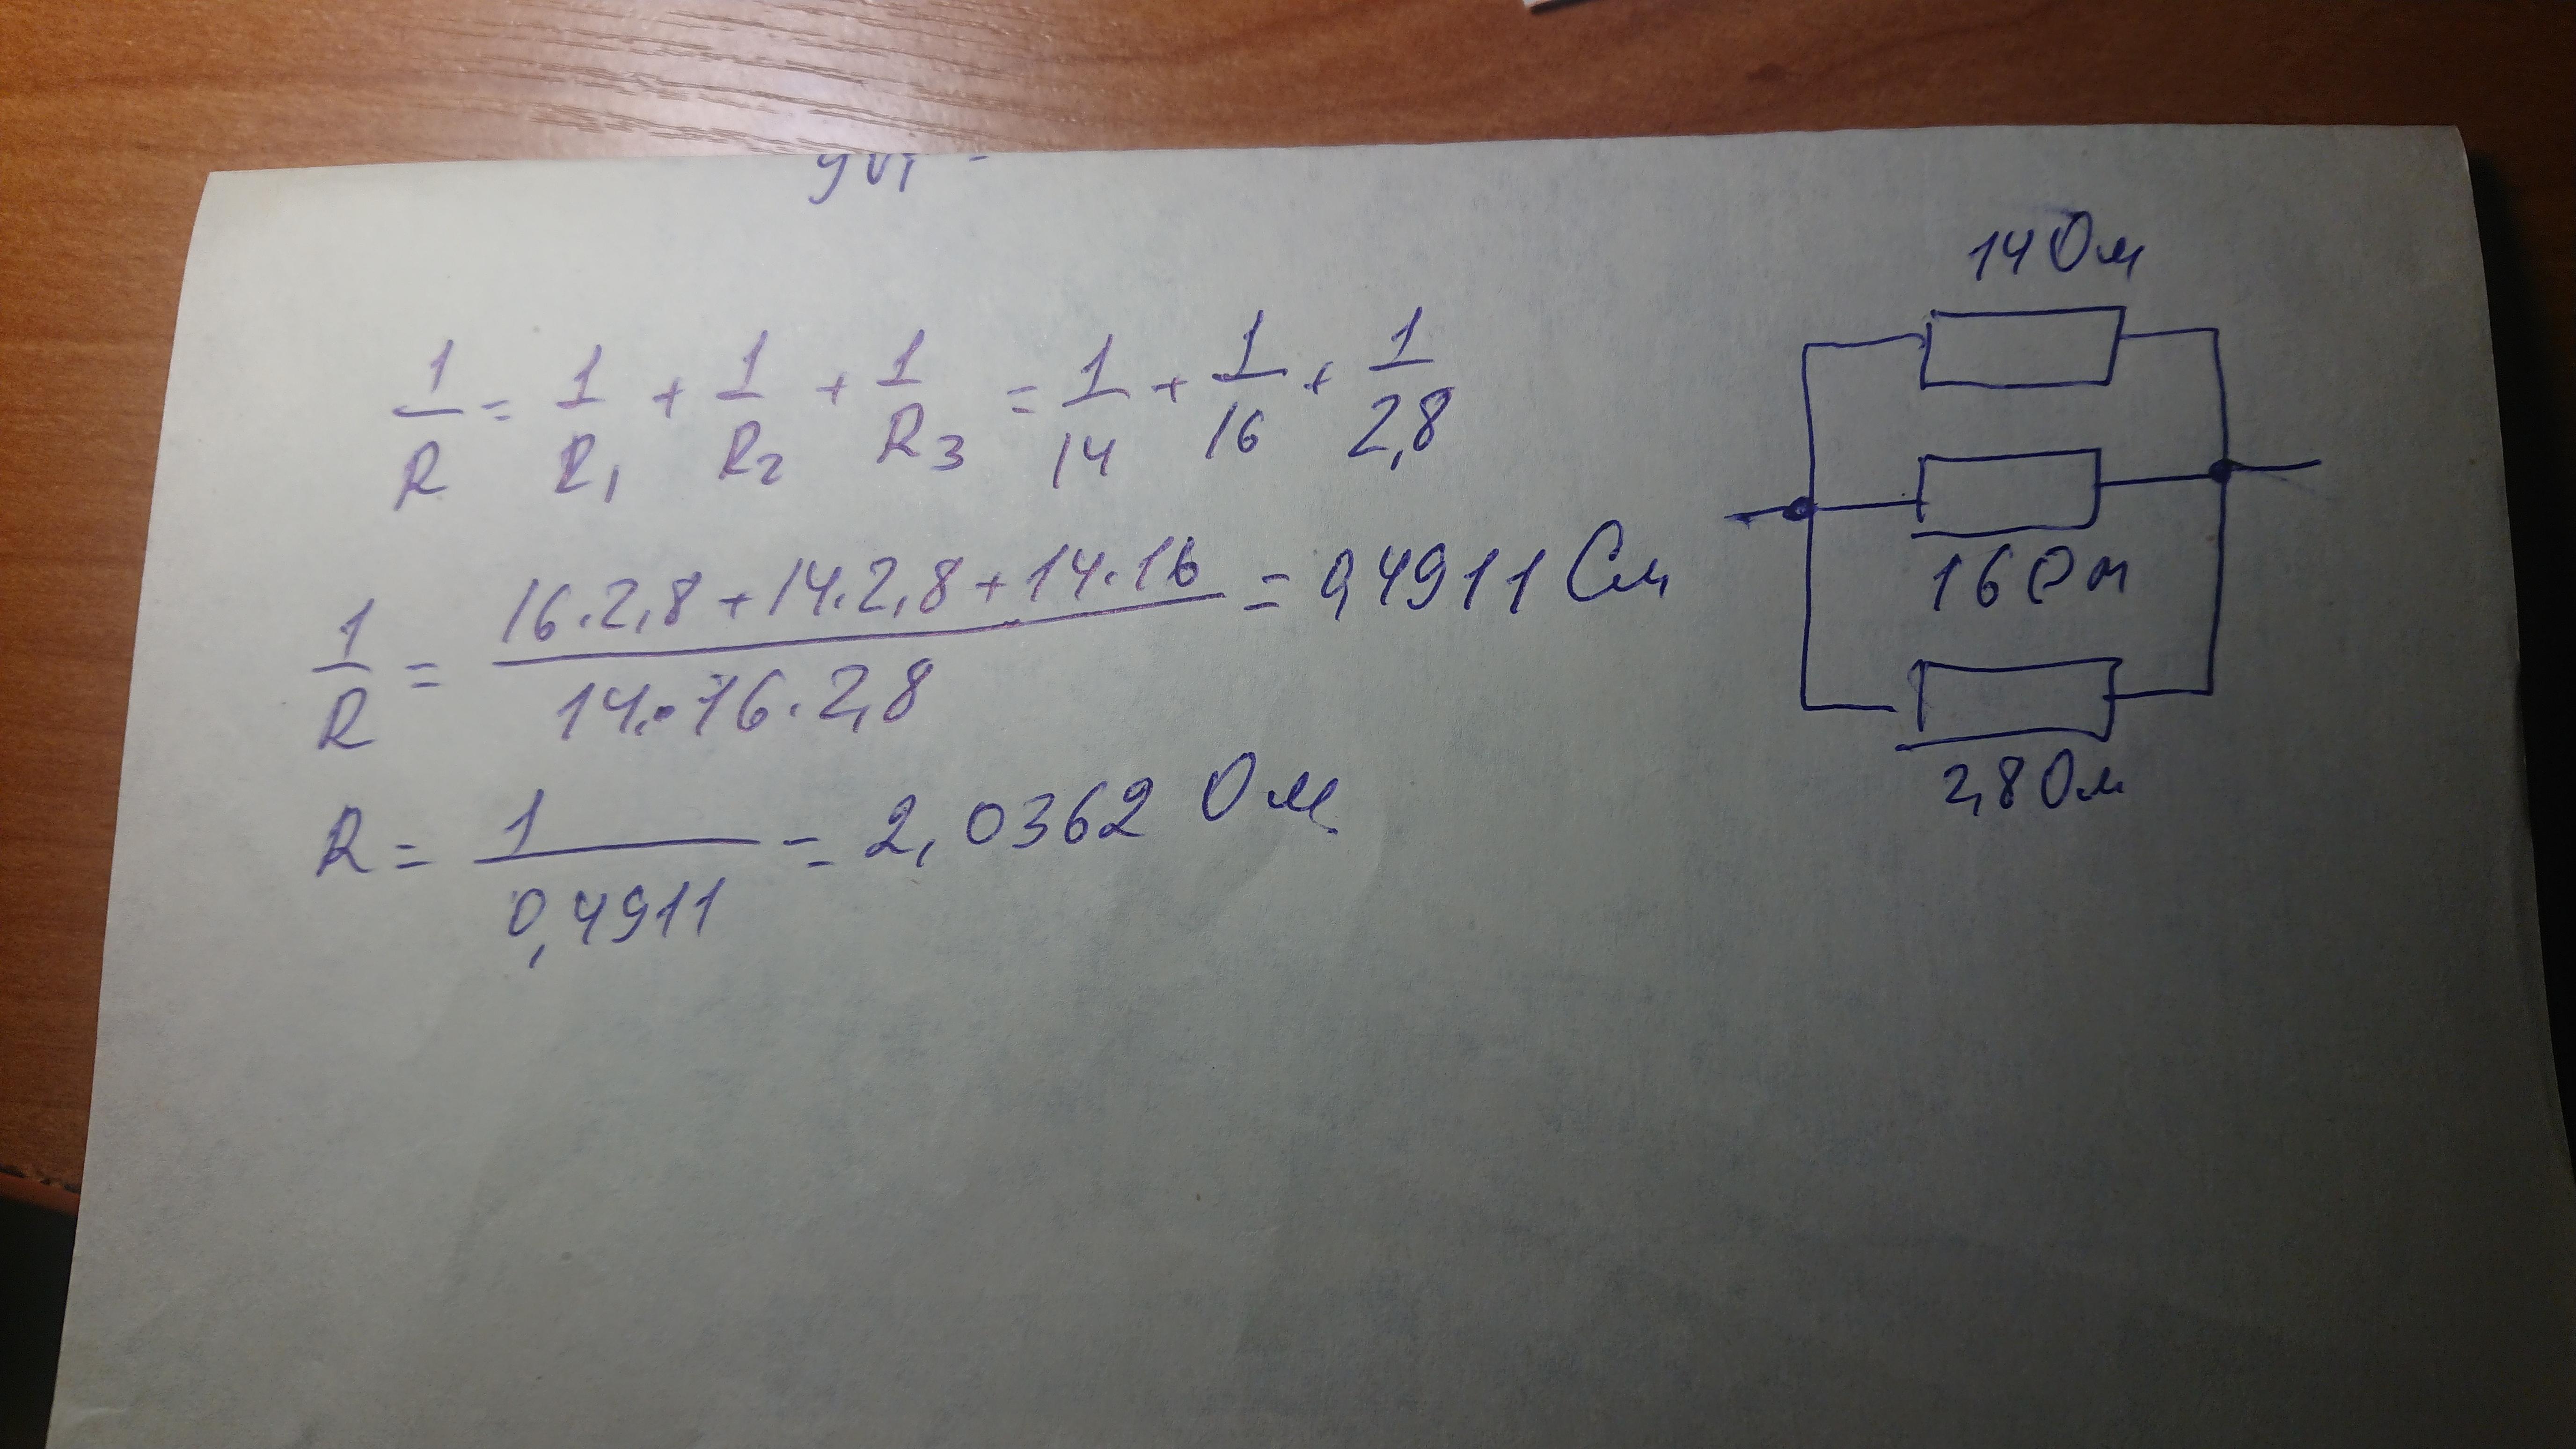 1/R = 1/R₁ + 1/R₂ + 1/R₃ = 1/14 + 1/16 + 1/2,8
1/R = (16·2,8 + 14·2,8 + 14·16)/(14·16·2,8) = 0,4911 См
R = 1/0,4911 = 2,0362 Ом
14 Ом
16 Ом
2,8 Ом